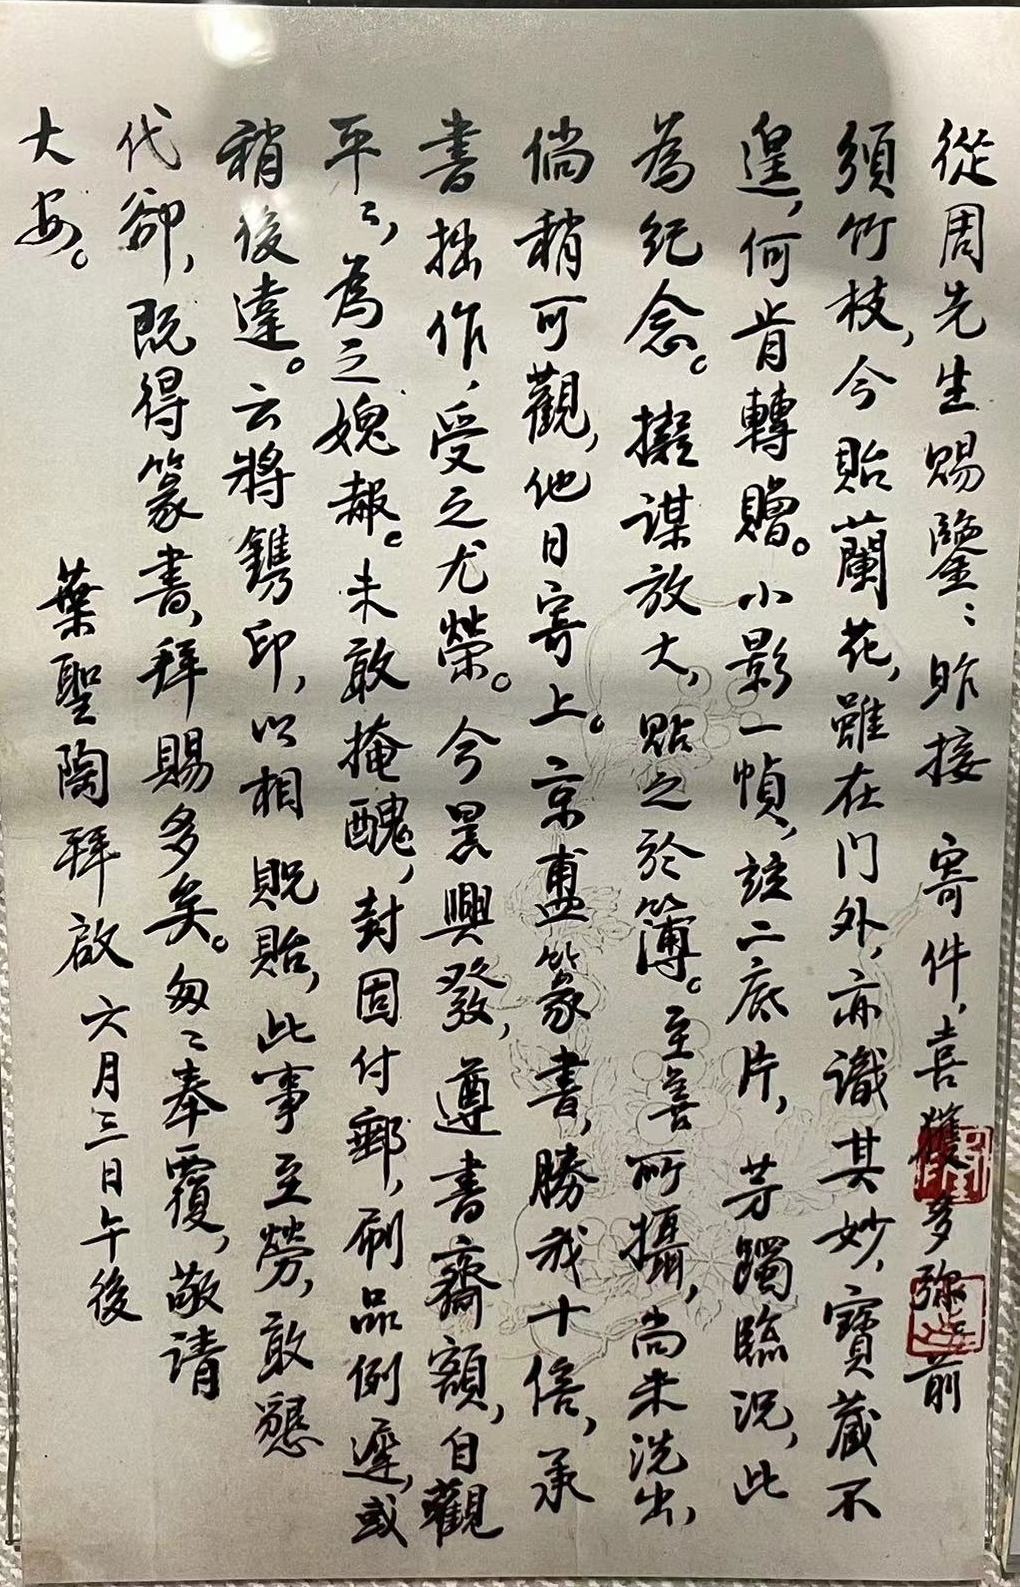 從周先生賜鑒：昨接 寄件，喜獲多珍。前
須竹枝，今貽蘭花，雖在门外，亦識其妙，寶藏不
遑，何肯轉贈。小影一幀，註二底片，芳躅臨況，此
為紀念。擬謀放大，點之於簿。至善所攝，尚未洗出，
倘稍可觀，他日寄上。京盙篆書，勝我十倍，承
書拙作，受之尤榮。今晨興發，遵書齋額，自觀
平〻，為之媿赧。未敢掩醜，封固付郵，刷品例遲，或
稍後達。云將鐫印，以相 貺貽，此事至勞，敢懇
代卻，既得篆書，拜賜多矣。匆〻奉覆，敬请
大安。
葉聖陶拜啟 六月三日午後